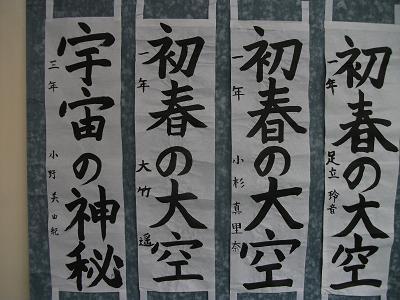 初春の大空
一年 足立 玲音
初春の大空
一年 小杉 真里奈
初春の大空
一年 大竹 遥
宇宙の神秘
三年 小野 美由紀